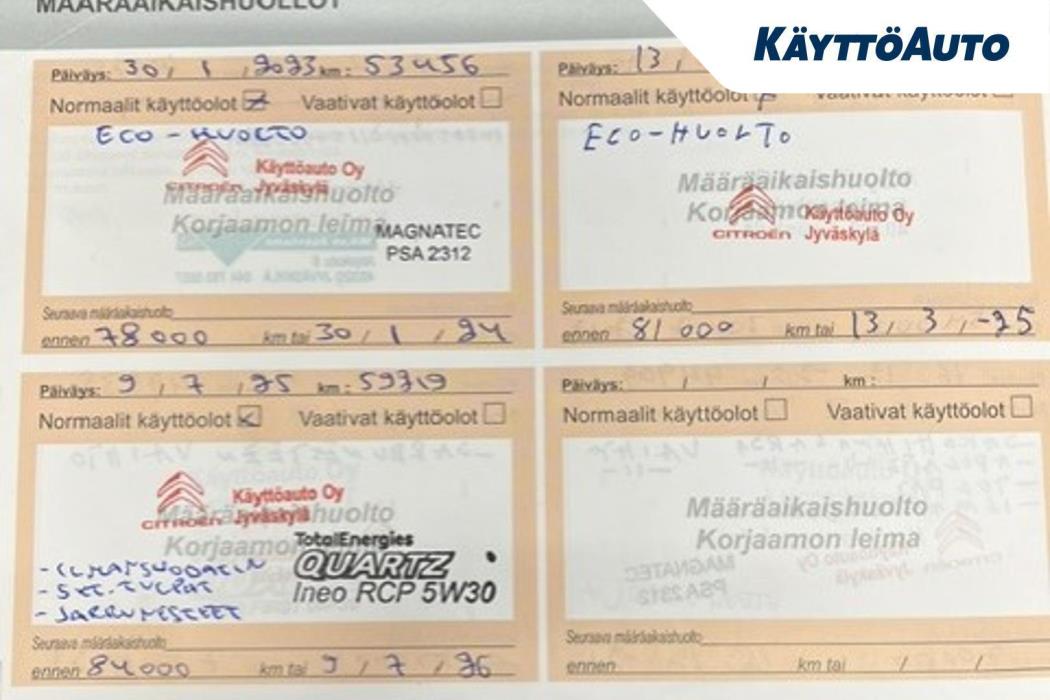 MÄÄRÄAIKAISHUOLLOT
KÄYTTÖAUTO
Päiväys: 30 / 1 / 2023 km: 53456
Normaalit käyttöolot Vaativat käyttöolot
ECO-HUOLTO
Käyttöauto Oy
CITROËN Jyväskylä
Määräaikaishuolto
Korjaamon leima
MAGNATEC
PSA 2312
Seuraava määräaikaishuolto
ennen 78000 km tai 30 / 1 / 24
Päiväys: 13 /
Normaalit käyttöolot
ECO-HUOLTO
Määräaikaishuolto
Korjaamon leima
Käyttöauto Oy
CITROËN Jyväskylä
Seuraava määräaikaishuolto
ennen 81000 km tai 13 / 3 / -25
Päiväys: 9 / 7 / 25 km: 59719
Normaalit käyttöolot Vaativat käyttöolot
Käyttöauto Oy
CITROËN Jyväskylä
Määräaikaishuolto
Korjaamon
TotalEnergies
QUARTZ
Ineo RCP 5W30
- ILMANSUODATIN
- SYT. TULPAT
- JARRUNESTEET
Seuraava määräaikaishuolto
ennen 84000 km tai 9 / 7 / 26
Päiväys: / / km:
Normaalit käyttöolot Vaativat käyttöolot
Määräaikaishuolto
Korjaamon leima
Seuraava määräaikaishuolto
ennen km tai / /